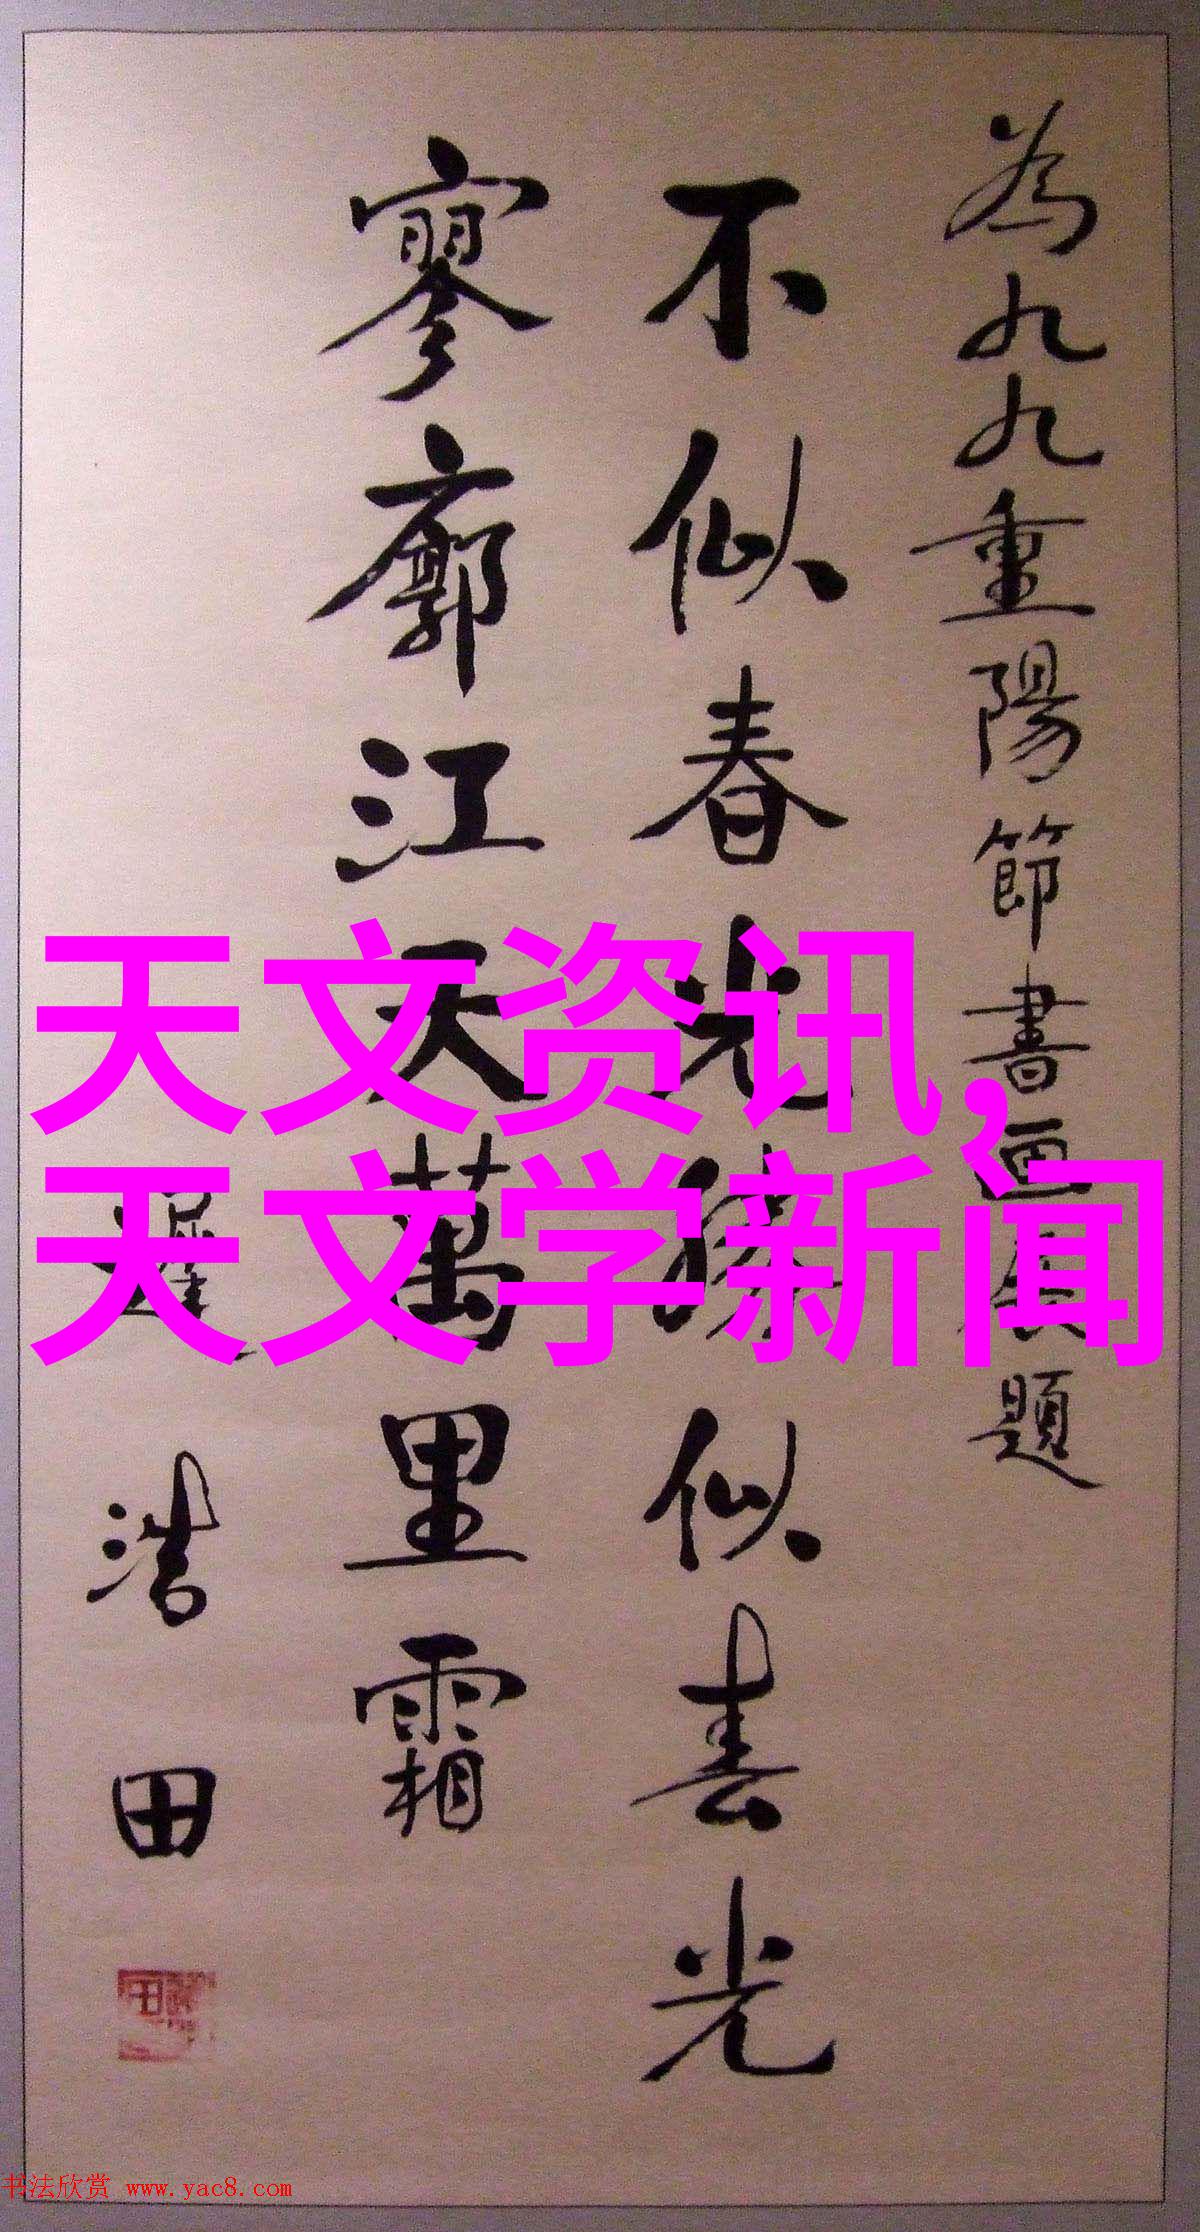 為九九重陽節書畫展題
不似春光勝似春光
寥廓江天萬里霜
浩田
天文资讯,
天文学新闻
书法欣赏 www.yac8.com